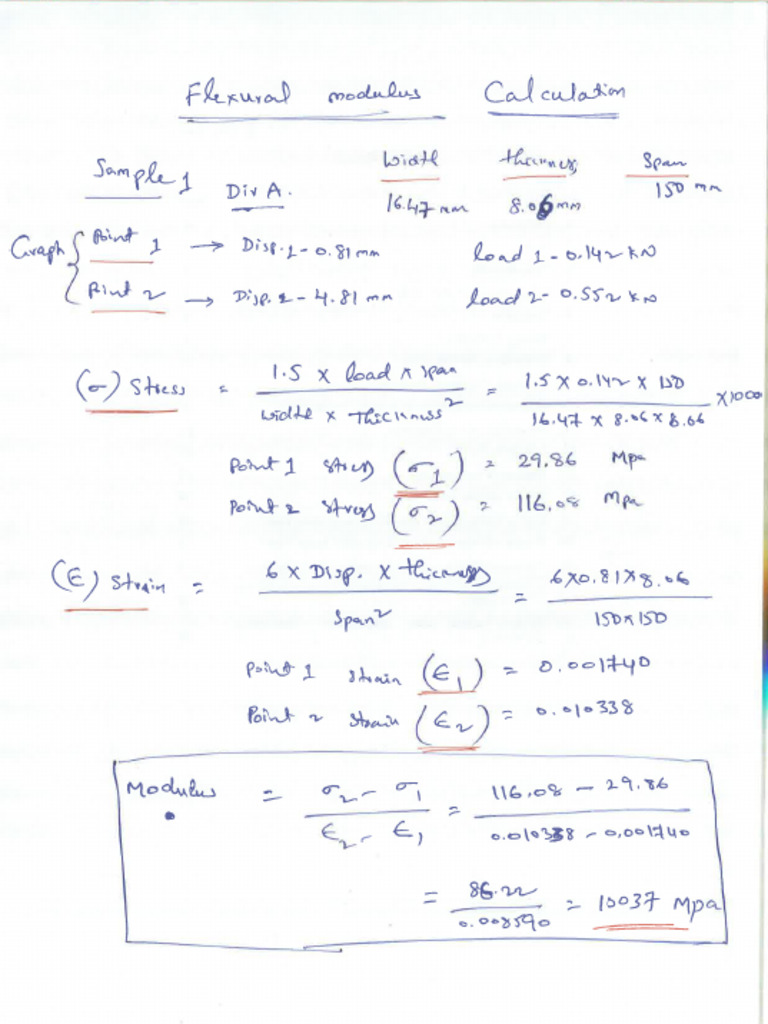 Flexural modulus Calculation
Sample 1 Div A. Width thickness Span
16.47 mm 8.06 mm 150 mm
Graph { Point 1 → Disp.1 - 0.81 mm load 1 - 0.142 KN
Point 2 → Disp. 2 - 4.81 mm load 2 - 0.552 KN
(σ) Stress = 1.5 × load × span / width × thickness² = 1.5 × 0.142 × 150 / 16.47 × 8.06 × 8.06 × 1000
Point 1 stress (σ1) = 29.86 Mpa
Point 2 stress (σ2) = 116.08 Mpa
(ϵ) Strain = 6 × Disp. × thickness / span² = 6×0.81×8.06 / 150×150
Point 1 strain (ϵ1) = 0.001740
Point 2 strain (ϵ2) = 0.010338
Modulus = σ2 - σ1 / ϵ2 - ϵ1 = 116.08 - 29.86 / 0.010338 - 0.001740
= 86.22 / 0.008590 = 10037 Mpa